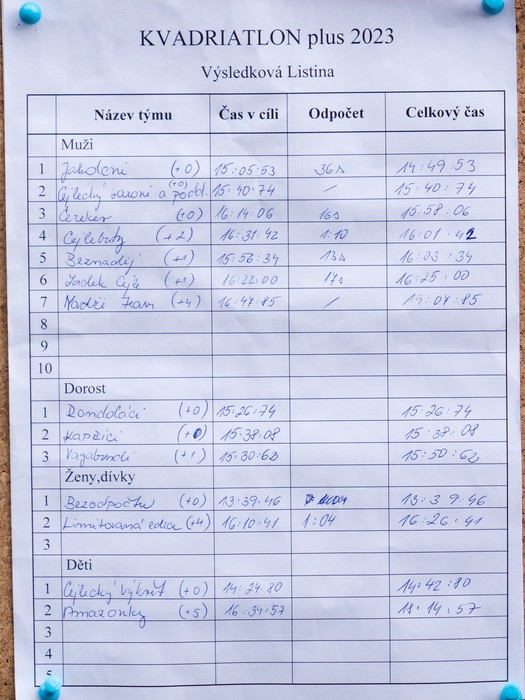 KVADRIATLON plus 2023
Výsledková Listina
Název týmu Čas v cíli Odpočet Celkový čas
Muži
1 (+0) 15:05:53 36s 14:49:53
2 Cejlecký (+0) 15:40:74 / 15:40:74
3 (+0) 16:14:06 16s 15:58:06
4 Cejlebrity (+2) 16:31:42 1:10 16:01:42
5 Beznaděj (+1) 15:56:34 13s 16:03:34
6 (+1) 16:22:00 17s 16:25:00
7 (+4) 16:47:85 / 19:07:85
8
9
10
Dorost
1 (+0) 15:26:74 15:26:74
2 (+0) 15:38:08 15:38:08
3 Vagabundi (+1) 15:30:62 15:50:62
Ženy,dívky
1 Bezodpočtu (+0) 13:39:46 13:39:46
2 Limitovaná edice (+4) 16:10:41 1:04 16:26:41
3
Děti
1 Cejlecký výkvět (+0) 14:24:80 14:42:80
2 Amazonky (+5) 16:34:57 18:14:57
3
4
5